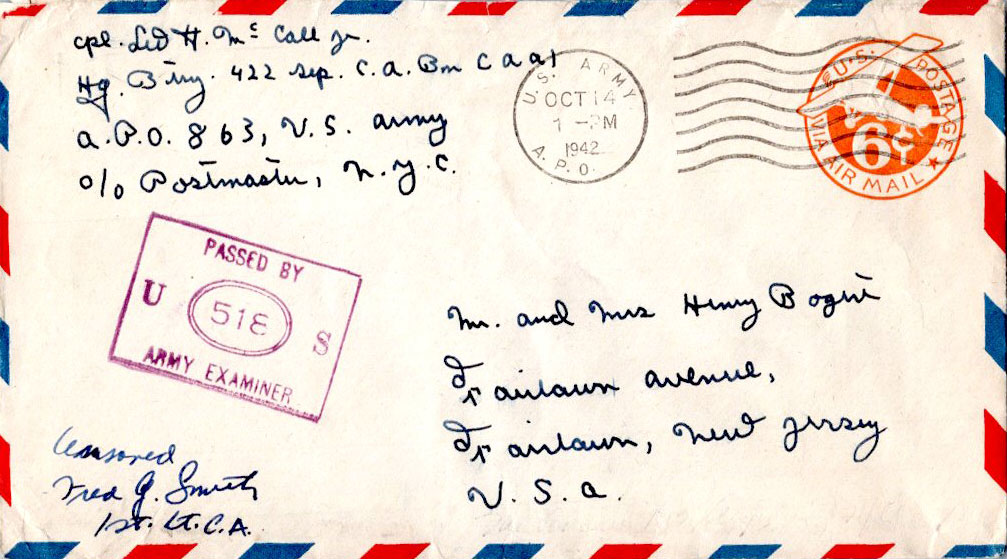 cpl. Led H. Mc Call Jr.
Hq. Btry. 422 sep. C. A. Bn C A A 1
A.P.O. 863, U.S. army
c/o Postmaster, N.Y.C.
U.S. ARMY
OCT 14
1 - PM
1942
A.P.O.
U.S. POSTAGE
6¢
VIA AIR MAIL
PASSED BY
U 518 S
ARMY EXAMINER
Mr. and Mrs Henry Bogert
Fairlawn avenue,
Fairlawn, New Jersey
U. S. a.
Censored
Fred J. Smith
1st. Lt. C.A.